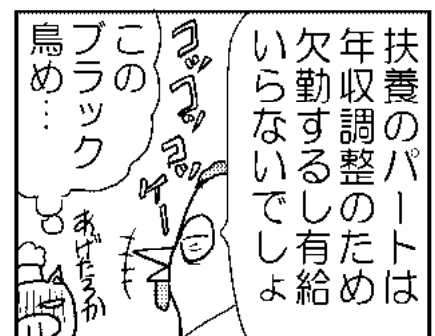 扶養のパートは
年収調整のため
欠勤するし有給
いらないでしょ
コッ
コッ
コッ
ケー
この
ブラック
鳥め…
あげたろか